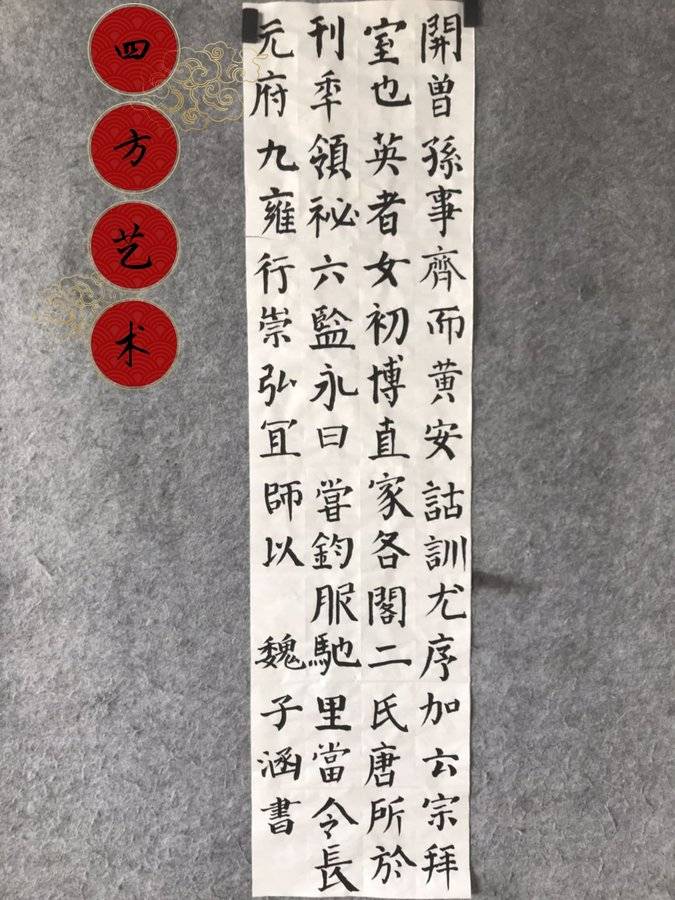 四方艺术
開曾孫事齊而黄安詁訓尤序加云宗拜
室也英者女初博直家各閣二氏唐所於
刊秊領祕六監永曰甞鈞服馳里當令長
元府九雍行崇弘冝師以 魏子涵書